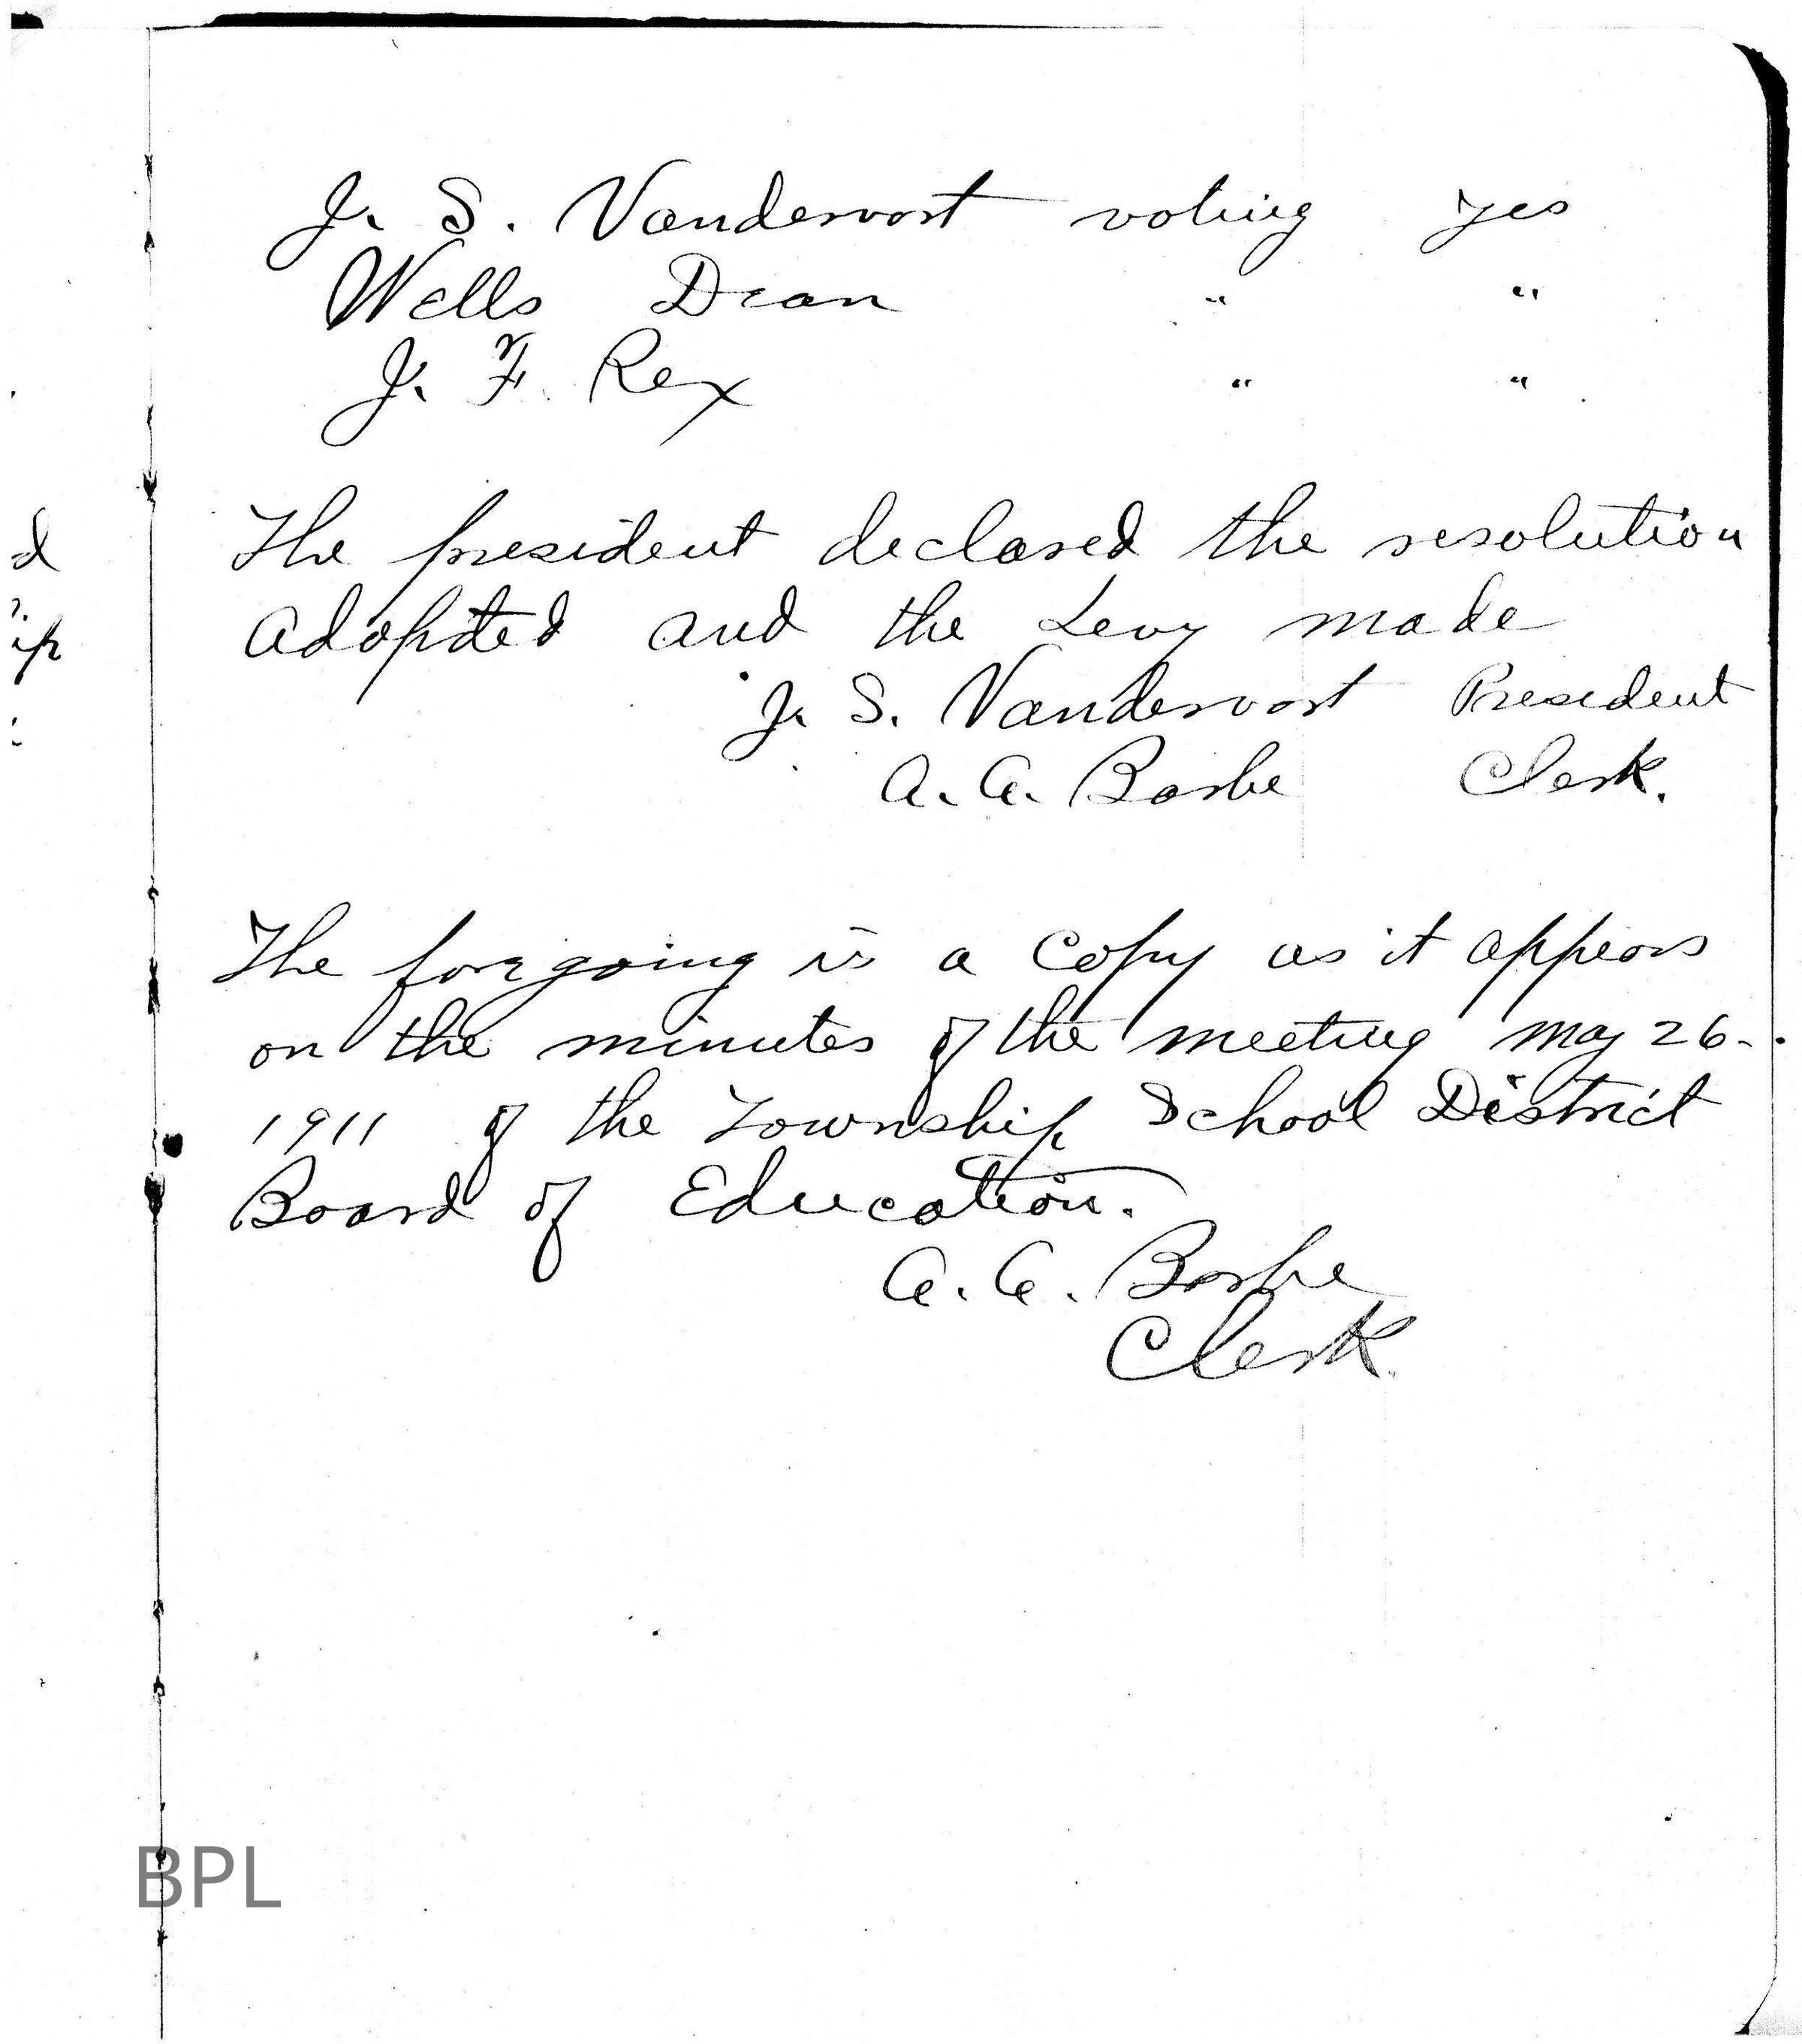 J. S. Vandervort voting yes
Wells Dean " "
J. F. Rex " "
The president declared the resolution
adopted and the Levy made
J. S. Vandervort President
A. A. Barbe Clerk.
The foregoing is a copy as it appears
on the minutes of the meeting may 26-
1911 of the Township School District
Board of Education.
A. A. Barbe
Clerk.
BPL